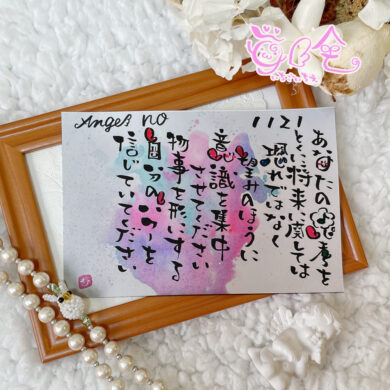 Angel no 1121
あなたの思考を
とくに将来に関しては
恐れではなく
望みのほうに
意識を集中
させてください
物事を形にする
自分のパワーを
信じていてください